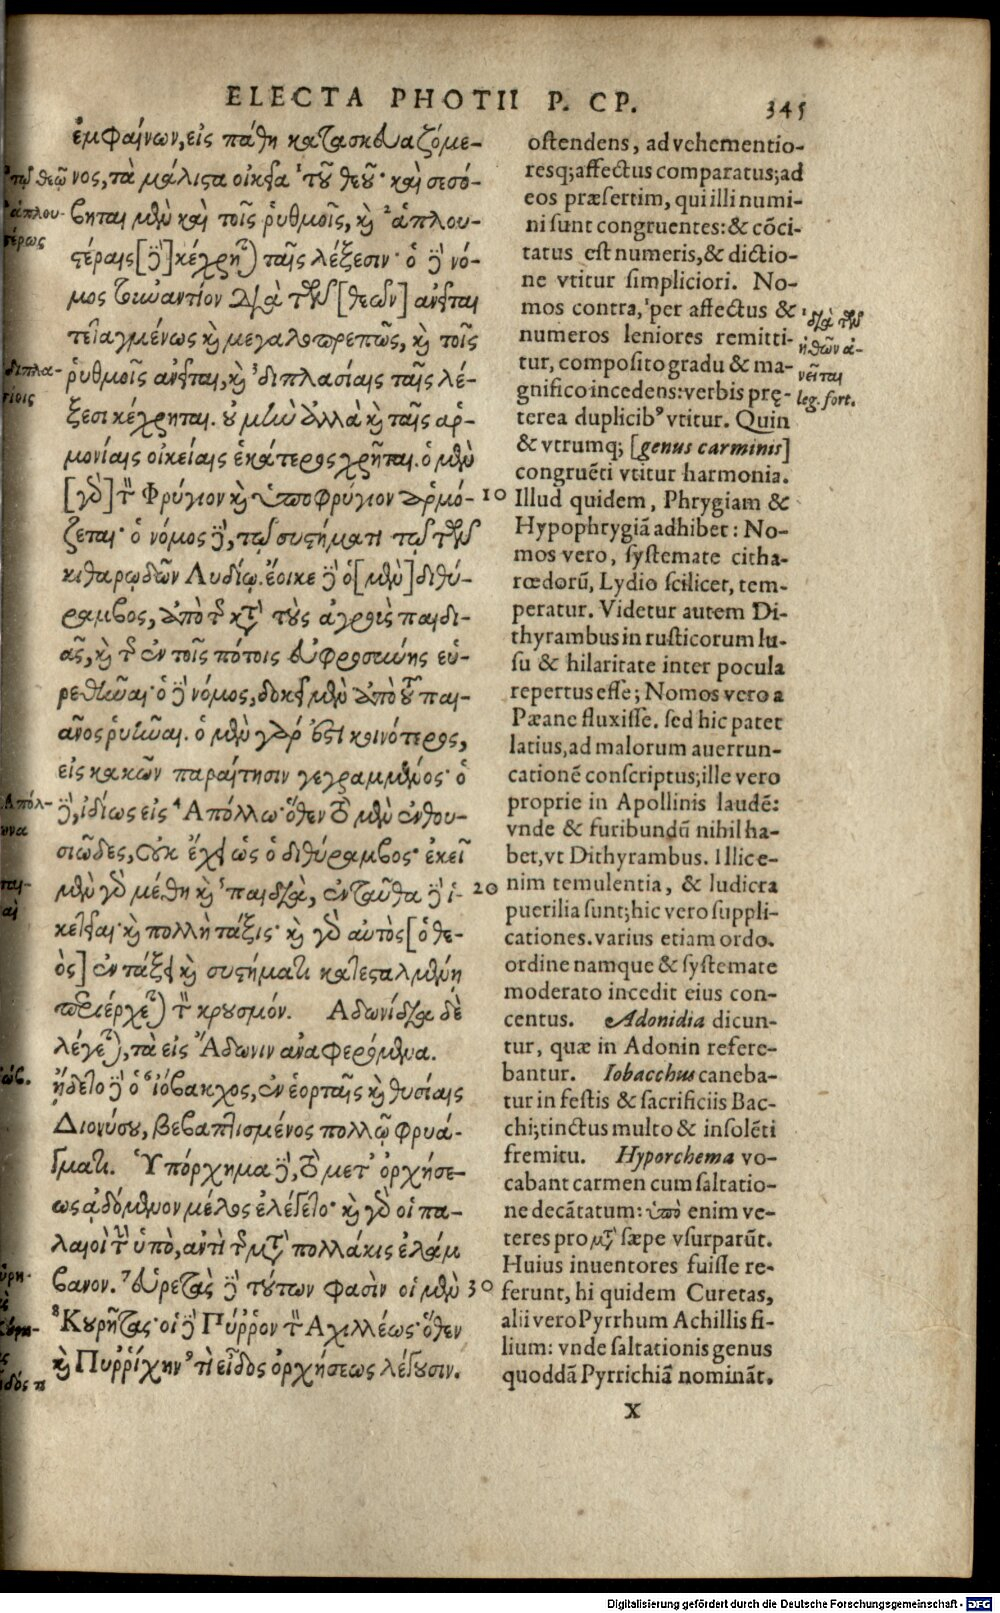 ELECTA PHOTII P. CP.
345
ἐμφαίνων, εἰς πάθη κατασκευαζόμε-
νος, τὰ μάλιστα οἰκεῖα ¹τοῦ θεοῦ· καὶ σεσό-
βηται μὲν καὶ τοῖς ῥυθμοῖς, καὶ ²ἁπλου-
στέραις [δὲ] κέχρηται ταῖς λέξεσιν· ὁ δὲ νό-
μος τοὐναντίον διὰ τῶν [θεῶν] ἀνεῖται
τεταγμένως καὶ μεγαλοπρεπῶς, καὶ τοῖς
ῥυθμοῖς ἀνεῖται, καὶ ³διπλασίαις ταῖς λέ-
ξεσι κέχρηται. οὐ μὴν ἀλλὰ καὶ ταῖς ἁρ-
μονίαις οἰκείαις ἑκάτερος χρῆται. ὁ μὲν
[γὰρ] τὸν Φρύγιον καὶ ὑποφρύγιον ἁρμό-
ζεται· ὁ νόμος δὲ, τῷ συστήματι τῷ τῶν
κιθαρῳδῶν Λυδίῳ. ἔοικε δὲ ὁ [μὲν] διθύ-
ραμβος, ἀπὸ τῆς κατὰ τοὺς ἀγροὺς παιδι-
ᾶς, καὶ τῆς ἐν τοῖς πότοις εὐφροσύνης εὑ-
ρεθῆναι· ὁ δὲ νόμος, δοκεῖ μὲν ἀπὸ τοῦ παι-
ᾶνος ῥυῆναι. ὁ μὲν γάρ ἐστι κοινότερος,
εἰς κακῶν παραίτησιν γεγραμμένος· ὁ
δὲ, ἰδίως εἰς ⁴Ἀπόλλω· ὅθεν τὸ μὲν ἐνθου-
σιῶδες, οὐκ ἔχει ὡς ὁ διθύραμβος· ἐκεῖ
μὲν γὰρ μέθη καὶ ⁵παιδιὰ, ἐνταῦθα δὲ ἱ-
κετεῖαι· καὶ πολλὴ τάξις· καὶ γὰρ αὐτὸς [ὁ θε-
ὸς] ἐν τάξει καὶ συστήματι κατεσταλμένη
περιέρχεται τὸν κρουσμόν. Ἀδωνίδια δὲ
λέγεται, τὰ εἰς Ἄδωνιν ἀναφερόμενα.
ᾔδετο δὲ ὁ ⁶ἰόβακχος, ἐν ἑορταῖς καὶ θυσίαις
Διονύσου, βεβαπτισμένος πολλῷ φρυά-
γματι. Ὑπόρχημα δὲ, τὸ μετ' ὀρχήσε-
ως ᾀδόμενον μέλος ἐλέγετο· καὶ γὰρ οἱ πα-
λαιοὶ τὴν ὑπὸ, ἀντὶ τῆς μετὰ πολλάκις ἐλάμ
βανον. ⁷εὑρετὰς δὲ τούτων φασὶν οἱ μὲν
⁸Κουρῆτας· οἱ δὲ Πύῤῥον τὸν Ἀχιλλέως· ὅθεν
καὶ Πυῤῥίχην ⁹τὶ εἶδος ὀρχήσεως λέγουσιν.
¹τῷ θεῷ
²ἁπλου-
στέρως
³διπλα-
σίοις
Ἀπόλ-
ωνα
ιώβ.
10
20
30
ostendens, ad vehementio-
resq; affectus comparatus; ad
eos præsertim, qui illi numi-
ni sunt congruentes: & cōci-
tatus est numeris, & dictio-
ne vtitur simpliciori. No-
mos contra, ¹per affectus &
numeros leniores remitti-
tur, composito gradu & ma-
gnifico incedens: verbis prę-
terea duplicibꝰ vtitur. Quin
& vtrumq; [genus carminis]
congruēti vtitur harmonia.
Illud quidem, Phrygiam &
Hypophrygiā adhibet: No-
mos vero, systemate citha-
rœdorū, Lydio scilicet, tem-
peratur. Videtur autem Di-
thyrambus in rusticorum lu-
su & hilaritate inter pocula
repertus esse; Nomos vero a
Pæane fluxisse. sed hic patet
latius, ad malorum auerrun-
cationē conscriptus; ille vero
proprie in Apollinis laudē:
vnde & furibundū nihil ha-
bet, vt Dithyrambus. Illic e-
nim temulentia, & ludicra
puerilia sunt; hic vero suppli-
cationes. varius etiam ordo.
ordine namque & systemate
moderato incedit eius con-
centus. Adonidia dicun-
tur, quæ in Adonin refere-
bantur. Iobacchus caneba-
tur in festis & sacrificiis Bac-
chi; tinctus multo & insolēti
fremitu. Hyporchema vo-
cabant carmen cum saltatio-
ne decātatum: ὑπὸ enim ve-
teres pro μετὰ sæpe vsurparūt.
Huius inuentores fuisse re-
ferunt, hi quidem Curetas,
alii vero Pyrrhum Achillis fi-
lium: vnde saltationis genus
quoddā Pyrrichiā nomināt.
¹διὰ τῶν
ἠθῶν ἀ-
νεῖται
leg. fort.
X
Digitalisierung gefördert durch die Deutsche Forschungsgemeinschaft - DFG